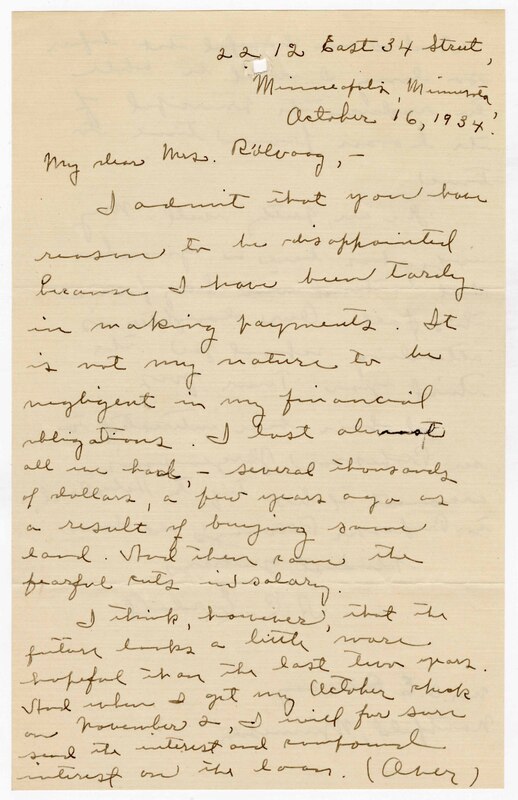 2212 East 34 Street,
Minneapolis, Minnesota,
October 16, 1934.
My dear Mrs. Rölvaag,-
I admit that you have
reason to be disappointed
because I have been tardy
in making payments. It
is not my nature to be
negligent in my financial
obligations. I lost almost
all we had,- several thousands
of dollars, a few years ago as
a result of buying some
land. And then came the
fearful cuts in salary.
I think, however, that the
future looks a little more
hopeful than the last two years.
And when I get my October check
on November 2, I will for sure
send the interest and compound
interest on the loan. (Over)